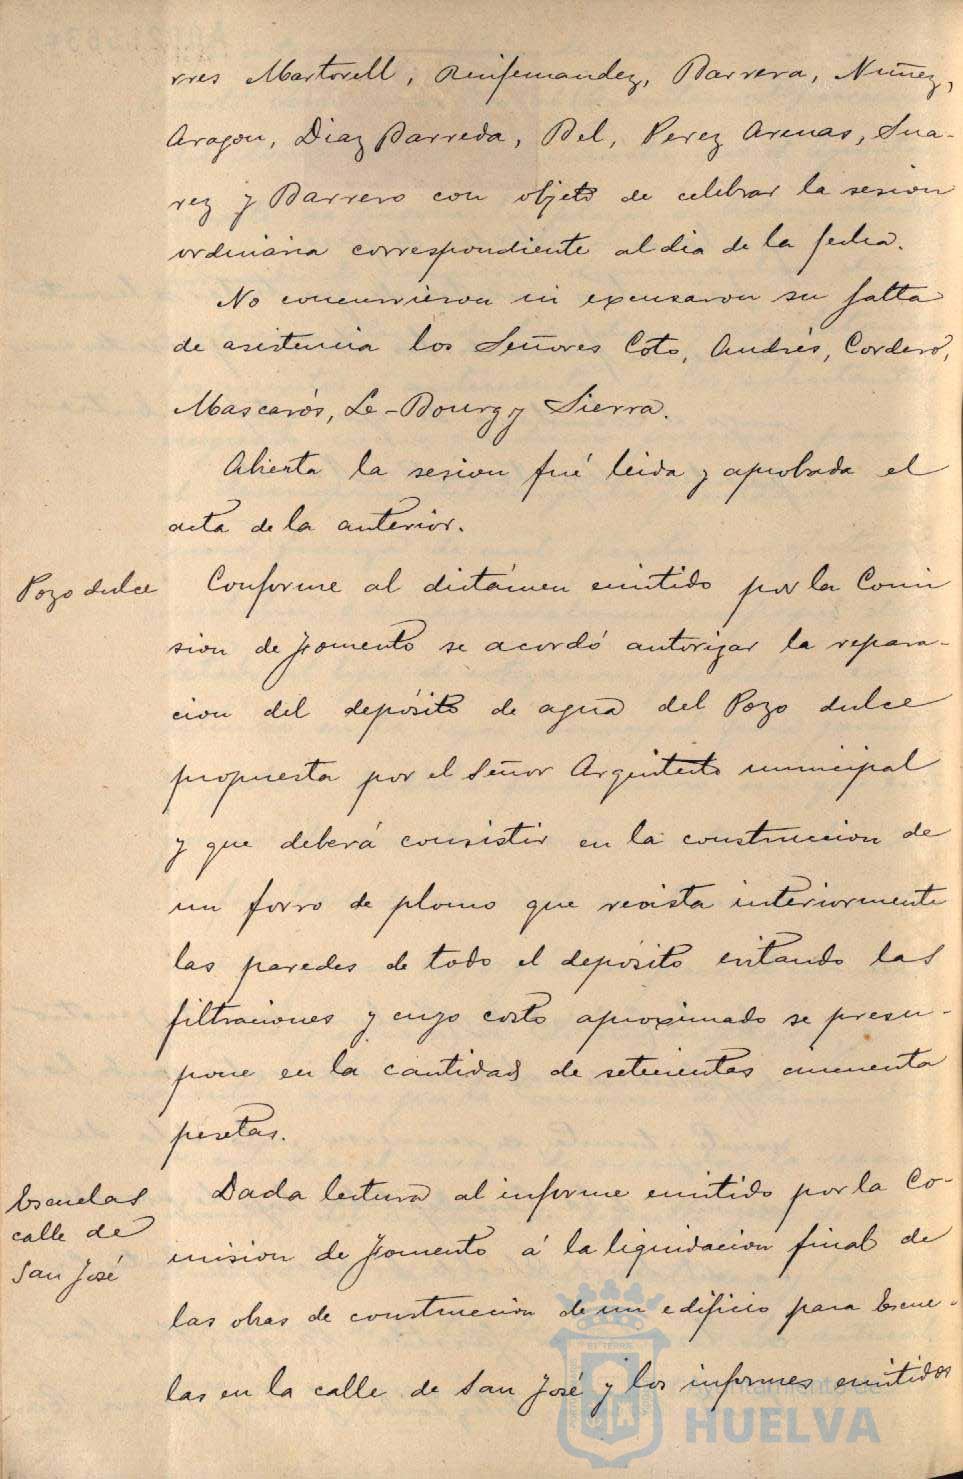 rres Martorell, Reinfernandez, Barrera, Nuñez,
Aragon, Diaz Barreda, Bel, Perez Arenas, Sua-
rez y Barrero con objeto de celebrar la sesion
ordinaria correspondiente al dia de la fecha.
No concurrieron ni excusaron su falta
de asistencia los Señores Coto, Andrés, Cordero,
Mascarós, Le-Bourg y Sierra.
Abierta la sesion fué leida y aprobada el
acta de la anterior.
Pozo dulce
Conforme al dictámen emitido por la Comi
sion de Fomento se acordó autorizar la repara-
cion del depósito de agua del Pozo dulce
propuesta por el Señor Arquitecto municipal
y que deberá consistir en la construccion de
un forro de plomo que revista interiormente
las paredes de todo el depósito evitando las
filtraciones y cuyo costo aproximado se presu-
pone en la cantidad de setecientas cincuenta
pesetas.
Escuelas
calle de
San José
Dada lectura al informe emitido por la Co-
mision de Fomento á la liquidacion final de
las obras de construccion de un edificio para Escue-
las en la calle de San José y los informes emitidos
Ayuntamiento de
HUELVA